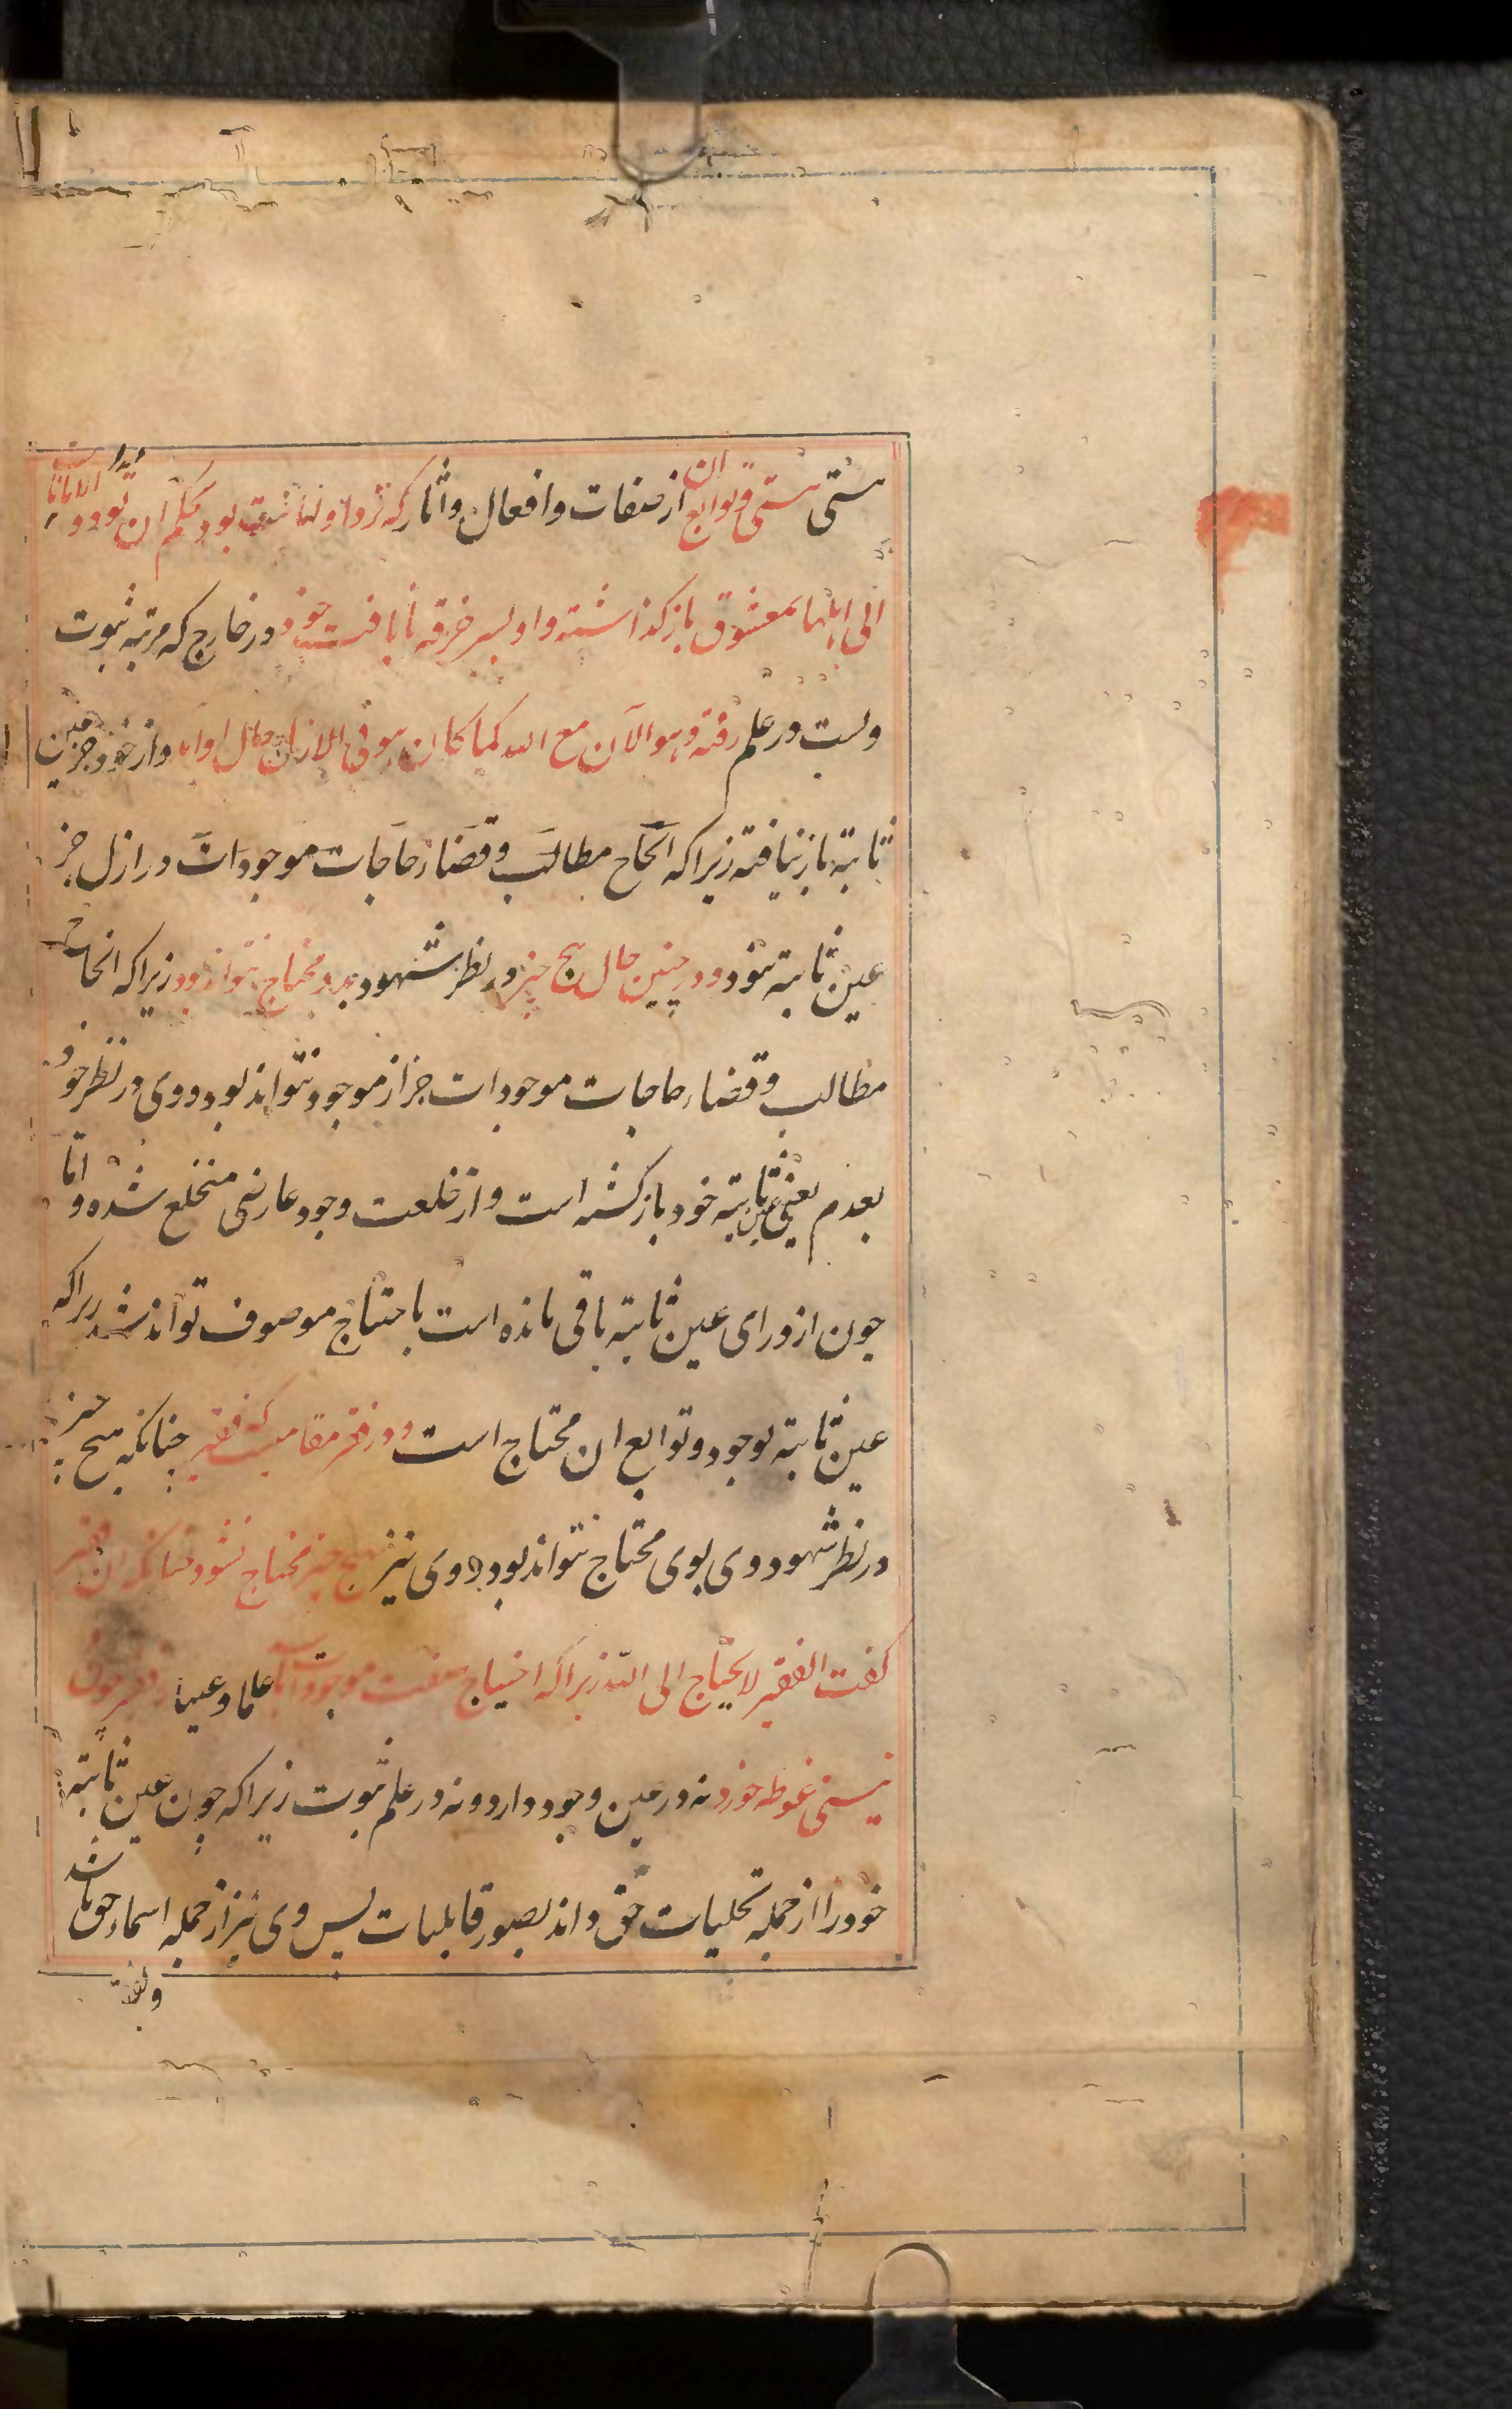 هستی هستی و توابع ان از صفات و افعال و اثار که نزد او امانت بود بحکم ان تودوا الامانات
الی اهلها بمعشوق باز کذاشته و او بسر خرقه نایافت خود در خارج که مرتبه ثبوت
ویست در علم رفته و هو الآن مع الله کما کان هو فی الازل حال او اید و از خود جز عین
ثابته باز نیافته زیرا که انجاح مطالب و قضاء حاجات موجودات در ازل جز
عین ثابته نبود و در چنین حال هیچ چیز در نظر شهود بدو محتاج نتواند بود زیرا که انجاح
مطالب و قضاء حاجات موجودات جز از موجود نتواند بود و وی در نظر خود
بعدم یعنی بعین ثابته خود باز کشته است و از خلعت وجود عارضی منخلع شده و اما
چون از ورای عین ثابته باقی مانده است باحتیاج موصوف تواند شد زیرا که
عین ثابته بوجود و توابع ان محتاج است و در فقر مقامیست که فقیر چنانکه هیچ چیز
در نظر شهود وی بوی محتاج نتواند بود وی نیز بهیچ چیز محتاج نشود چنانکه ان فقیر
کفت الفقیر لا یحتاج الی الله زیرا که احتیاج صفت موجود است علما و عینا و فقیر چون
نیستی غوطه خورد نه در عین وجود دارد و نه در علم ثبوت زیرا که چون عین ثابته
خود را از جمله تجلیات حق داند بصور قابلیات پس وی نیز از جمله اسماء حق باشد